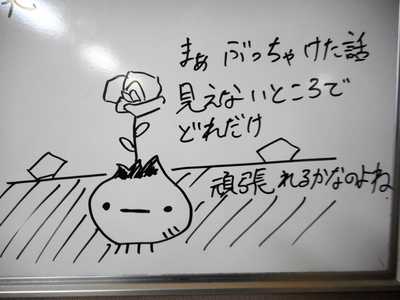 まぁ ぶっちゃけた話
見えないところで
どれだけ
頑張れるかなのよね